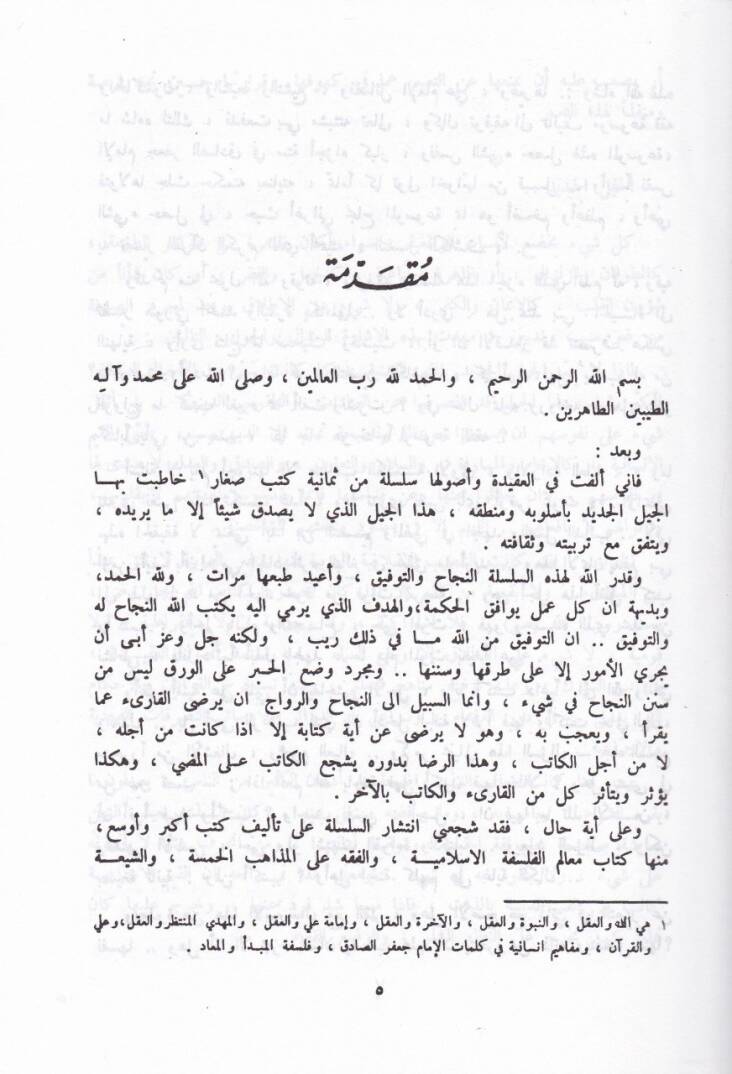 مُقَدّمَة
بسم الله الرحمن الرحيم ، والحمد لله رب العالمين ، وصلى الله على محمد وآلـه
الطيبين الطاهرين .
وبعد :
فاني ألفت في العقيدة وأصولها سلسلة من ثمانية كتب صغار ١ خاطبت بهـا
الجيل الجديد بأسلوبه ومنطقه ، هذا الجيل الذي لا يصدق شيئاً إلا ما يريده ،
ويتفق مع تربيته وثقافته .
وقدر الله لهذه السلسلة النجاح والتوفيق ، وأعيد طبعها مرات ، ولله الحمد،
وبديهة ان كل عمل يوافق الحكمة،والهدف الذي يرمي اليه يكتب الله النجاح له
والتوفيق .. ان التوفيق من الله مـا في ذلك ريب ، ولكنه جل وعز أبى أن
يجري الأمور إلا على طرقها وسننها .. ومجرد وضع الحـبر على الورق ليس من
سنن النجاح في شيء ، وانما السبيل الى النجاح والرواج ان يرضى القارىء عما
يقرأ ، ويعجب به ، وهو لا يرضى عن أية كتابة إلا اذا كانت من أجله ،
لا من أجل الكاتب ، وهذا الرضا بدوره يشجع الكاتب عـلى المضي ، وهكذا
يؤثر ويتأثر كل من القارىء والكاتب بالآخر .
وعلى أية حال ، فقد شجعني انتشار السلسلة على تأليف كتب أكبر وأوسع،
منها كتاب معالم الفلسفة الاسلاميـة ، والفقه على المذاهب الخمسة ، والشيعـة
١ هي الله والعقل ، والنبوة والعقل ، والآخرة والعقل ، وإمامة علي والعقل ، والمهدي المنتظر والعقل،وعلي
والقرآن ، ومفاهيم انسانية في كلمات الإمام جعفر الصادق ، وفلسفة المبـدأ والمعاد .
٥